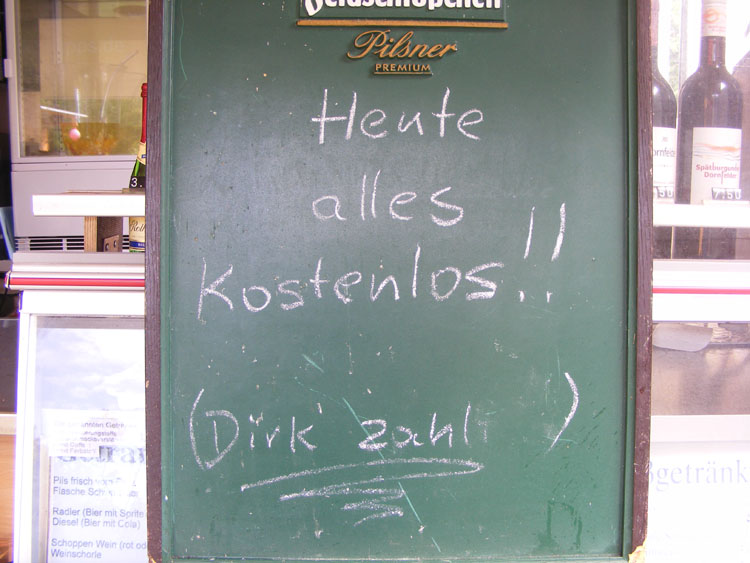 Pilsner
PREMIUM
Heute
alles
Kostenlos!!
(Dirk zahlt)
Spätburgunder
Dornfelder
7,50
3.
Pils frisch
Flasche
Radler (Bier mit Sprite
Diesel (Bier mit Cola)
Schoppen Wein (rot
Weinschorle